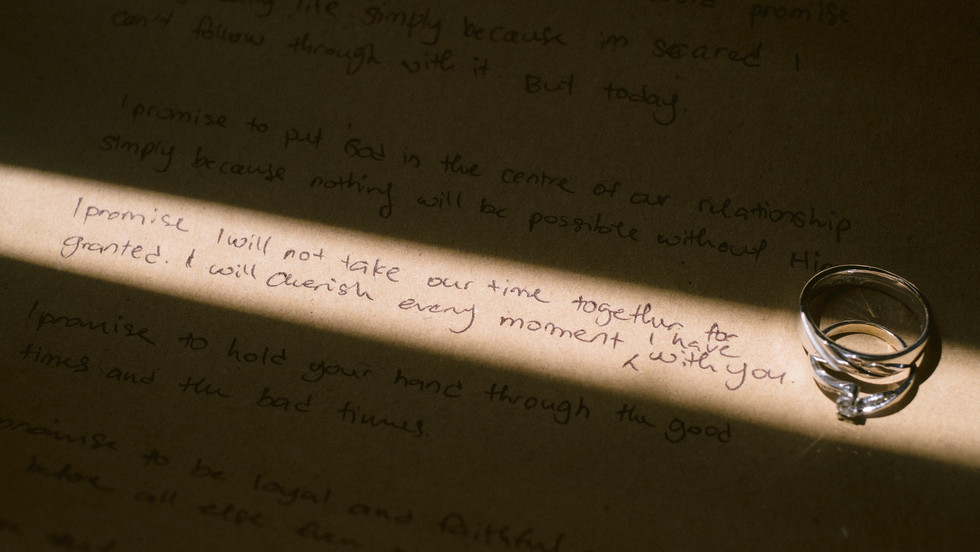 promise
life simply because im scared I
can't follow through with it But today.
I promise to put God in the centre of our relationship
simply because nothing will be possible without Him
I promise I will not take our time together for
granted. I will cherish every moment ^ I have with you.
I promise to hold your hand through the good
times and the bad times.
promise to be loyal and faithful
before all else even